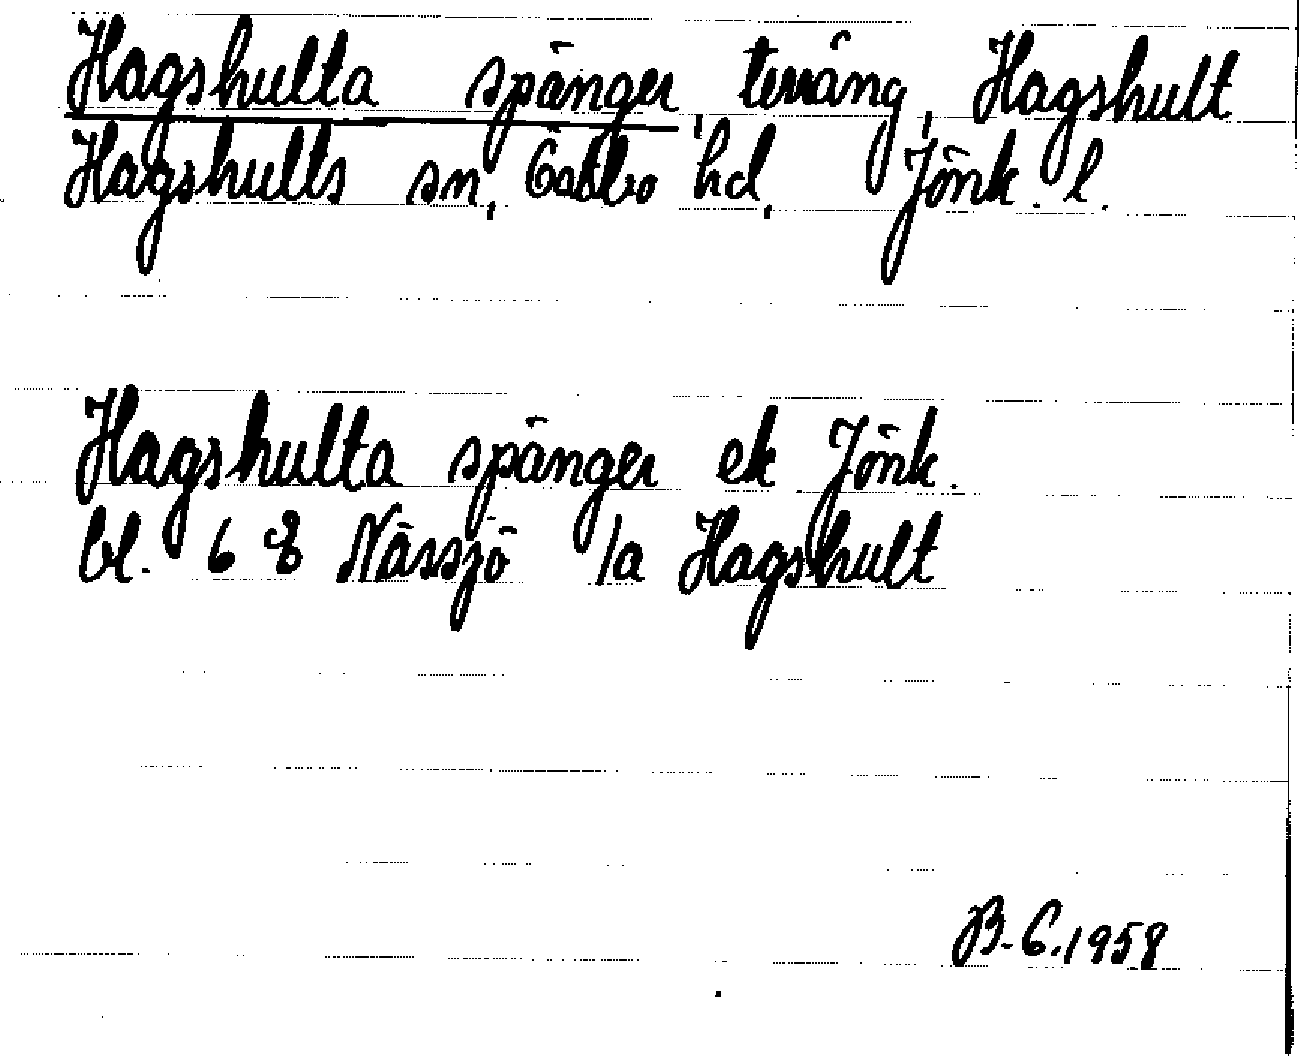 Hagshulta spänger, terräng, Hagshult
Hagshults sn, Östbo hd, Jönk. l.
Hagshulta spänger ek Jönk.
bl. 6 8 Nässjö /a Hagshult
B-C.1958